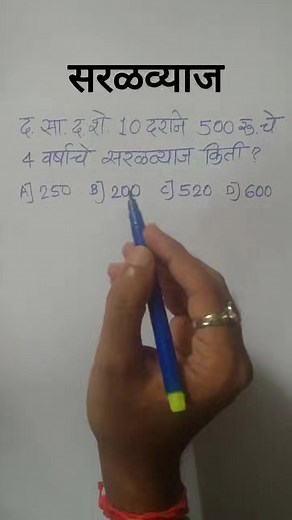 सरळव्याज
द. सा. द. शे. 10 दराने 500 रू. चे
4 वर्षाचे सरळव्याज किती ?
A] 250 B] 200 C] 520 D] 600